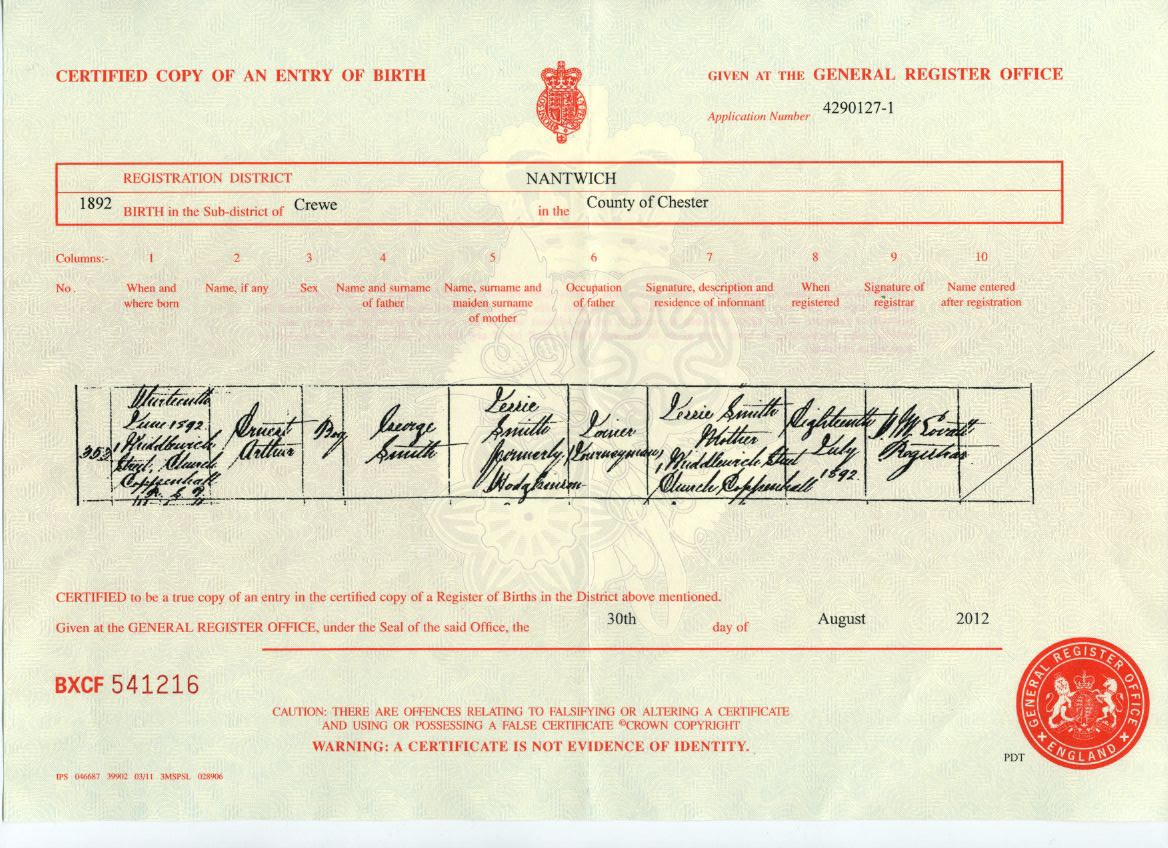 CERTIFIED COPY OF AN ENTRY OF BIRTH
GIVEN AT THE GENERAL REGISTER OFFICE
Application Number 4290127-1
REGISTRATION DISTRICT NANTWICH
1892 BIRTH in the Sub-district of Crewe in the County of Chester
Columns:- 1 2 3 4 5 6 7 8 9 10
No. When and where born
Name, if any
Sex
Name and surname of father
Name, surname and maiden surname of mother
Occupation of father
Signature, description and residence of informant
When registered
Signature of registrar
Name entered after registration
353
June 1892
1 Middlewich
Street, Church
Coppenhall
Ernest
Arthur
Boy
George
Smith
Smith
formerly
Hodgkinson
(Journeyman)
Smith
Mother
1, Middlewich Street
Church Coppenhall
Eighteenth
July
1892
Registrar
CERTIFIED to be a true copy of an entry in the certified copy of a Register of Births in the District above mentioned.
Given at the GENERAL REGISTER OFFICE, under the Seal of the said Office, the 30th day of August 2012
BXCF 541216
CAUTION: THERE ARE OFFENCES RELATING TO FALSIFYING OR ALTERING A CERTIFICATE
AND USING OR POSSESSING A FALSE CERTIFICATE ©CROWN COPYRIGHT
WARNING: A CERTIFICATE IS NOT EVIDENCE OF IDENTITY.
GENERAL REGISTER OFFICE
ENGLAND
PDT
IPS 046687 39902 03/11 3MSPSL 028906